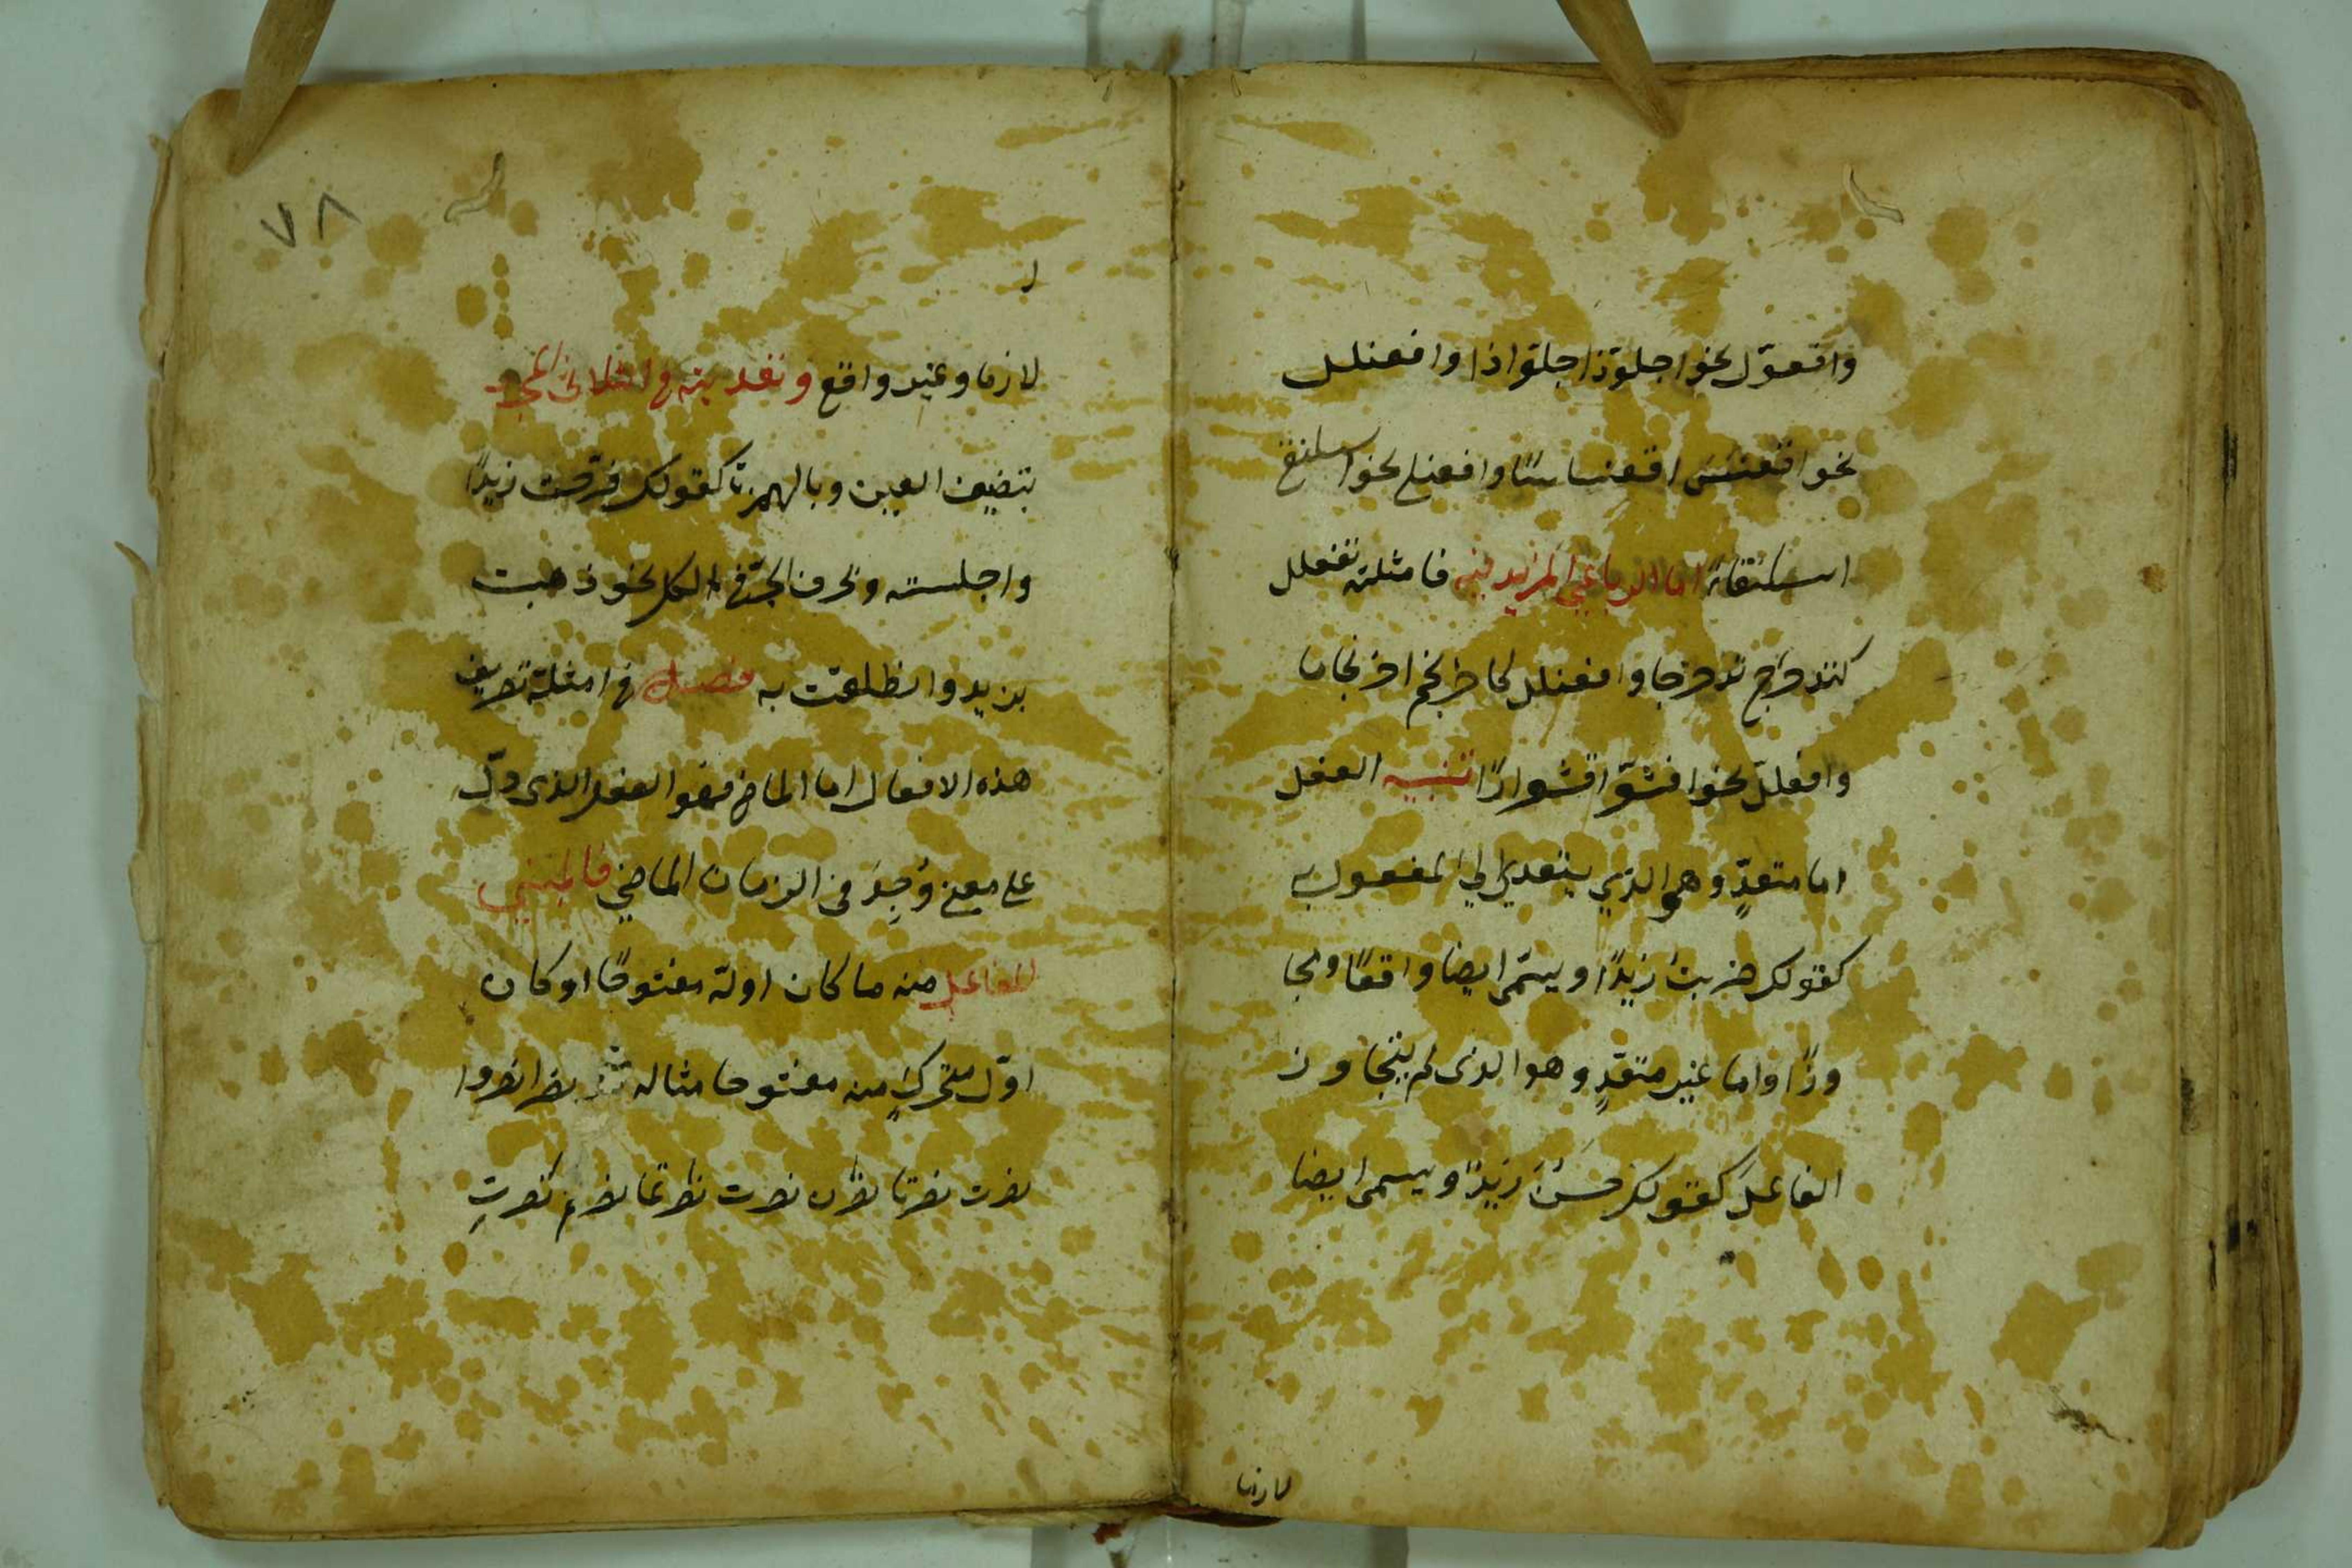 وافعوّل نحو اجلوّذ اجلوّاذا وافعنلل
نحو اقعنسس اقعنساسًا وافعنلى نحو اسلنقى
اسلنقاءً اما الرباعي المزيد فيه فامثلته تفعلل
كتدحرج تدحرجا وافعنلل كاحرنجم احرنجاما
وافعللّ نحو اقشعرّ اقشعرارًا تنبيه الفعل
اما متعدٍّ وهو الذي يتعدي الي المفعول به
كقولك ضربت زيدًا ويسمّى ايضا واقعًا ومجا
وزًا واما غير متعدٍّ وهو الذى لم يتجاوز
الفاعلَ كقولك حَسُنَ زيدٌ ويسمى ايضا
لازما
٧٨
لازما وغير واقع وتعديته فى الثلاثى المجرد
بتضعيف العين وبالهمزة كقولك فرّحت زيدًا
واجلسته وبحرف الجرّ فى الكل نحو ذهبت
بزيد وانطلقت به فصل فى امثلة تصريف
هذه الافعال اما الماضى فهو الفعل الذى دلّ
على معنى وُجِدَ فى الزمان الماضي فالمبني
للفاعل منه ما كان اوله مفتوحًا او كان
اوّل متحركٍ منه مفتوحا مثاله نصر نصرا نصروا
نصرت نصرتا نصرن نصرت نصرتما نصرتم نصرتِ